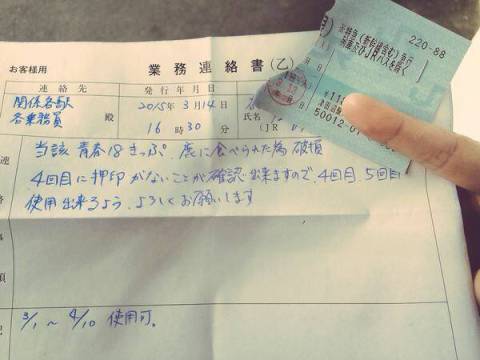 お客様用
業務連絡書(乙)
連絡先
発行年月日
関係各駅
各乗務員
殿
2015年3月14日
16時30分
氏名
(JR
当該 青春18きっぷ、鹿に食べられた為 破損
4回目に押印がないことが確認出来ますので、4回目、5回目
使用出来るよう、よろしくお願いします
連
事
項
3/1 ~ 4/10 使用可。
220-88
※特急(新幹線含む)急行
50012-01